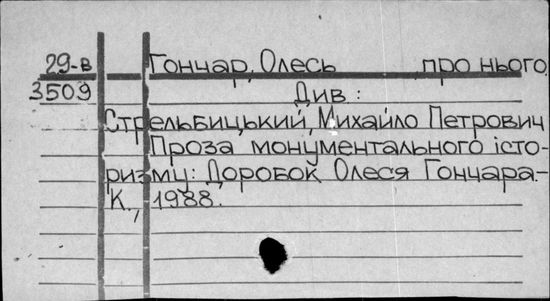 29-в Гончар, Олесь про нього
3509 Див:
Стрельбицький, Михайло Петрович
Проза монументального істо-
ризму: Доробок Олеся Гончара.-
К., 1988.